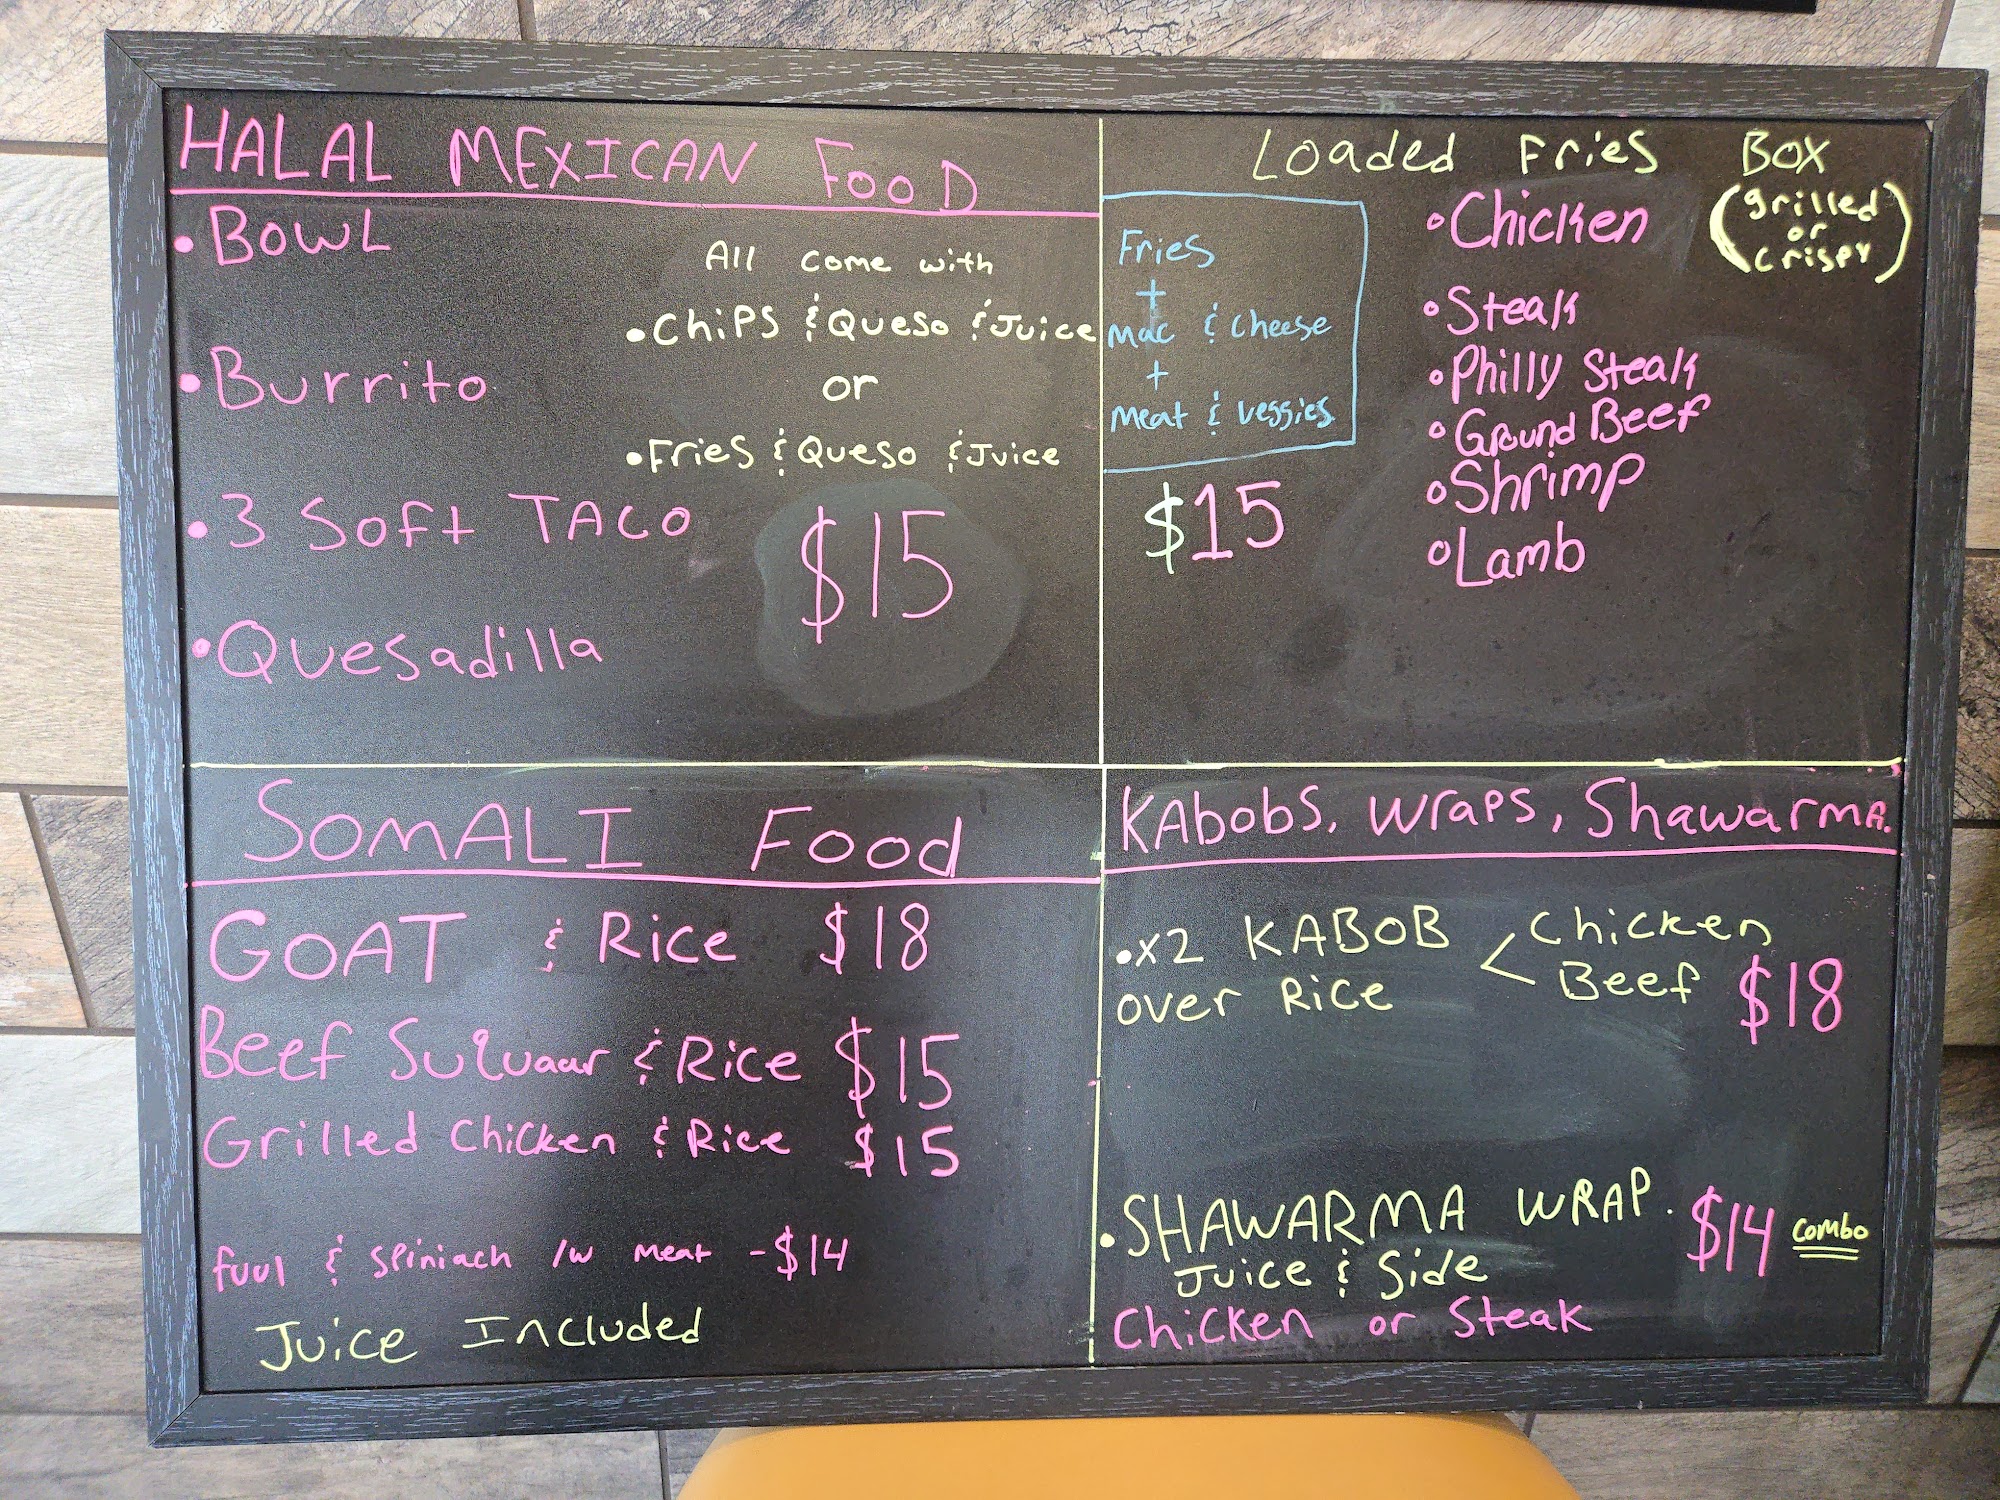 HALAL MEXICAN FooD
• BOWL
• Burrito
• 3 Soft TACO
• Quesadilla
All come with
• ChiPS & Queso & Juice
or
• Fries & Queso & Juice
$15
Loaded Fries BOX
(grilled
or
crispy)
Fries
+
Mac & cheese
+
Meat & veggies
$15
• Chicken
• Steak
• Philly Steak
• Ground Beef
• Shrimp
• Lamb
SomALI Food
GOAT & Rice $18
Beef Suquaar & Rice $15
Grilled Chicken & Rice $15
fuul & spiniach /w meat - $14
Juice Included
KAbobs, wraps, Shawarma.
• x2 KABOB < Chicken
Beef $18
over Rice
• SHAWARMA WRAP. $14 combo
Juice & Side
Chicken or Steak